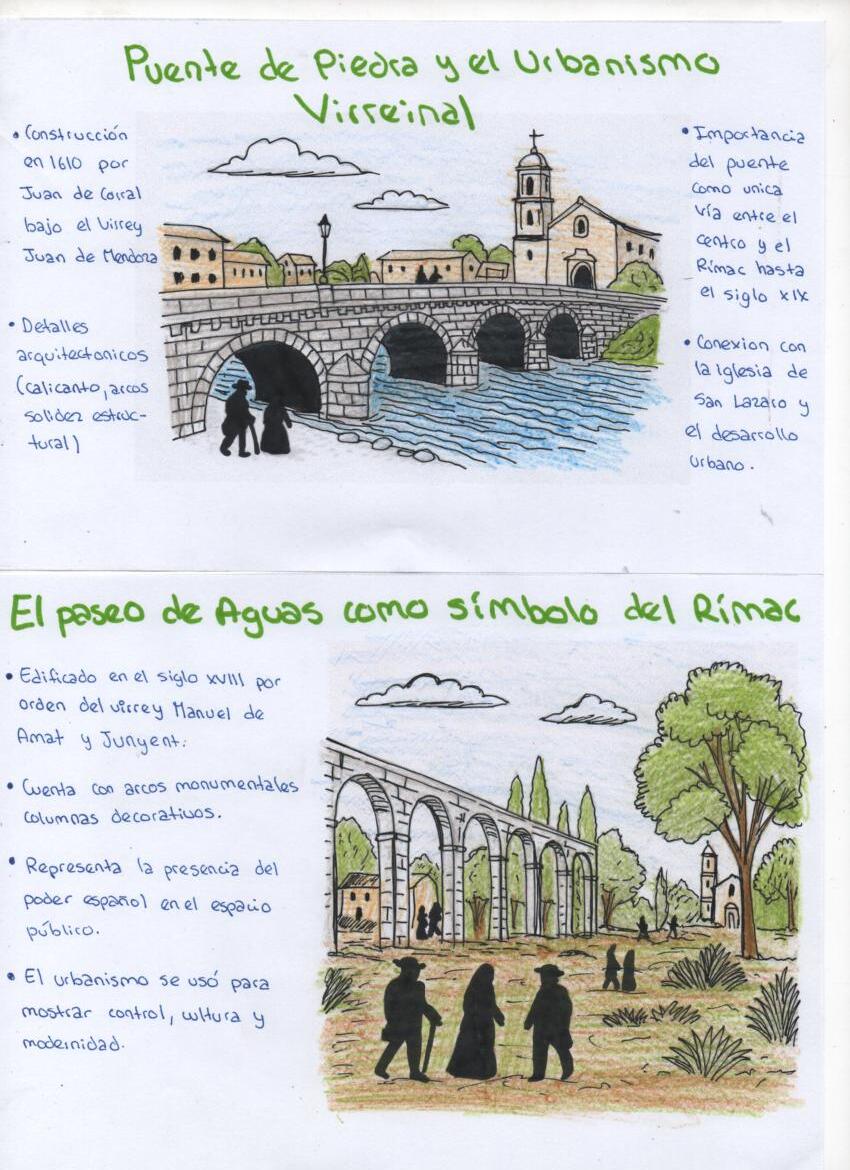 Puente de Piedra y el Urbanismo
Virreinal
• Construcción
en 1610 por
Juan de Corral
bajo el Virrey
Juan de Mendoza
• Detalles
arquitectonicos
(calicanto, arcos
solidez estruc-
tural)
• Importancia
del puente
como unica
vía entre el
centro y el
Rímac hasta
el siglo XIX
• Conexion con
la iglesia de
San Lazaro y
el desarrollo
urbano.
El paseo de Aguas como símbolo del Rímac
• Edificado en el siglo XVIII por
orden del virrey Manuel de
Amat y Junyent.
• Cuenta con arcos monumentales
columnas decorativos.
• Representa la presencia del
poder español en el espacio
público.
• El urbanismo se usó para
mostrar control, cultura y
modernidad.